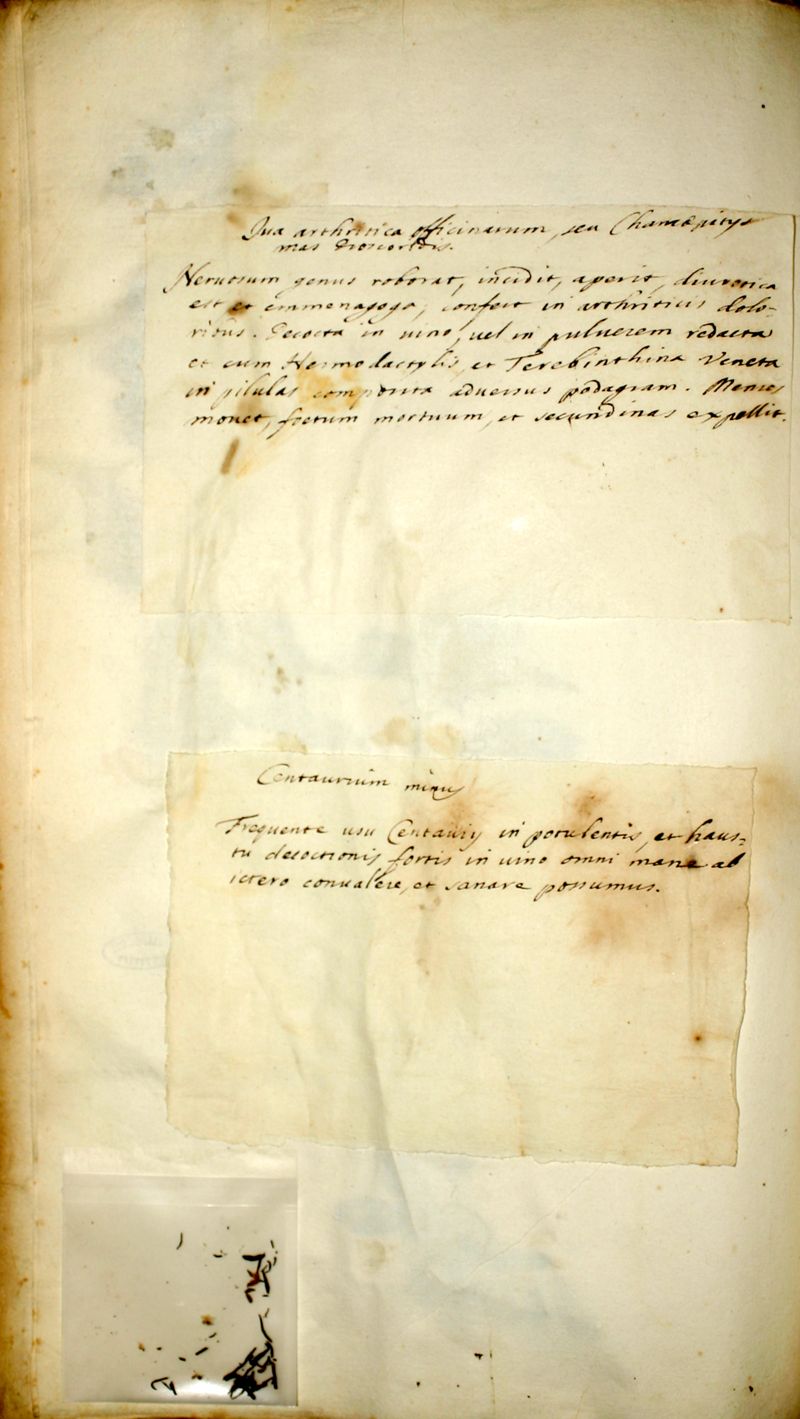 Iua arthritica officinarum, seu Chamæpitys
mas Dioscoridis.
Neruosum genus roborat, incidit, aperit, diuretica
est et emmenagoga, confert in arthriticis dolo-
ribus. Decocta in uino, uel in puluerem redacta
et cum Hermodactylis, et Terebinthina Veneta
in pilulas composita aduersus podagram. Menses
mouet, foetum mortuum, et secundinas expellit.
Centaurium minus
Frequente usu Centaurij in et haus-
tu decoctionis fortis in uino omni mane ab
ictero conualere, et sanare possumus.